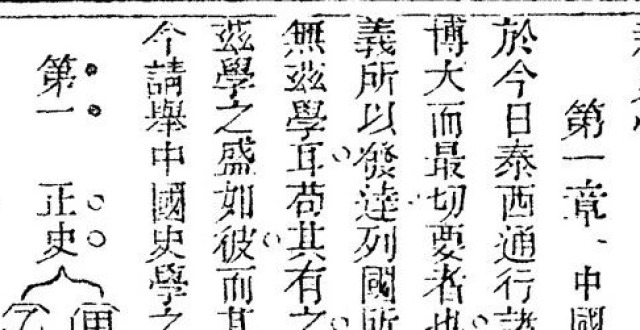 第一章、中國
於今日泰西通行諸
博大而最切要者也
義所以發達列國所
無茲學耳苟其有之
茲學之盛如彼而其
今請舉中國史學之
第一 正史
甲
乙